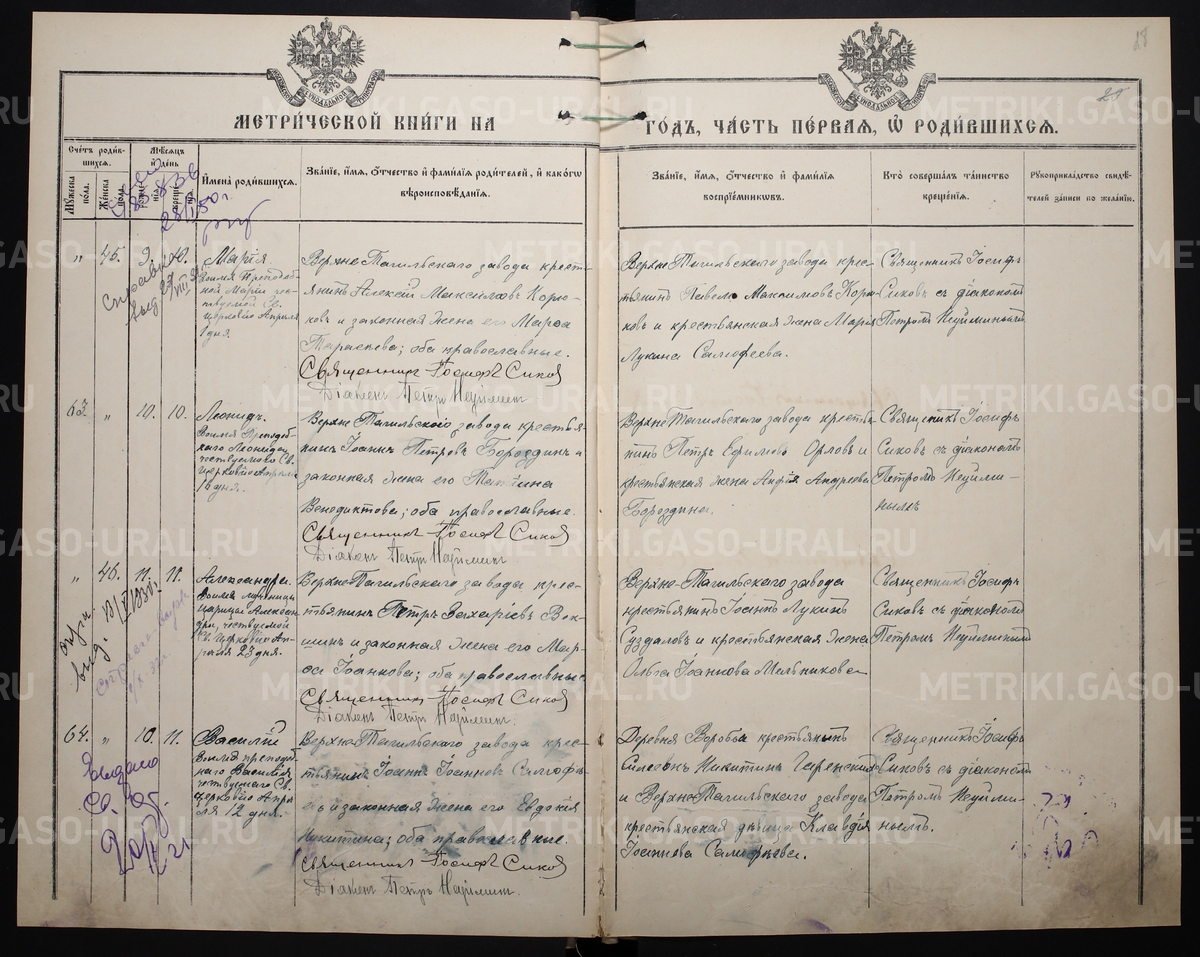 28
29
МЕТРИ́ЧЕСКОЙ КНИ́ГИ НА
ГО́ДЪ, ЧА́СТЬ ПЕ́РВАЯ, Ѡ҆ РОДИ́ВШИХСЯ.
Счетъ роди́в-
шихся.
Мѣсяцъ
и҆ день
Му́жеска
по́ла.
Же́нска
по́ла.
И҆мена̀ роди́вшихся.
Зва́нїе, и҆́мя, ѻ҆́тчество и҆ фами́лїа роди́телей, и҆ како́гѡ
вѣроисповѣ́данїя.
Зва́нїе, и҆́мя, ѻ҆́тчество и҆ фами́лїа
воспрїе́мникѡвъ.
Кто̀ соверша́лъ та́инство
креще́нїя.
Рꙋкоприкла́дство свидѣ́-
телей за́писи по жела́нїю.
" 45. 9. 10.
Марія
во имя Преподоб-
ной Маріи чес-
твуемой Св.
Церковію Апрѣля
1 дня.
Верхне-Тагильскаго завода крест-
янинъ Алексій Максимовъ Корю-
ковъ и законная жена его Марѳа
Тарасьева; оба православные.
Священникъ Іосифъ Сиковъ
Діаконъ Петръ Неуйминъ
Верхне-Тагильскаго завода крес-
тьянинъ Павелъ Максимовъ Корю-
ковъ и крестьянская жена Марія
Лукина Салофеева.
Священникъ Іосифъ
Сиковъ съ діакономъ
Петромъ Неуйминымъ
Справка
выд.
63. " 10. 10.
Леонидъ.
Во имя Преподоб-
наго Леонида,
чествуемаго Св.
Церковію Апрѣля
16 дня.
Верхне-Тагильскаго завода крестья-
нинъ Іоаннъ Петровъ Бороздинъ и
законная жена его Татіана
Венедиктова; оба православные.
Священникъ Іосифъ Сиковъ
Діаконъ Петръ Неуйминъ
Верхне-Тагильскаго завода крестья-
нинъ Петръ Ефимовъ Орловъ и
крестьянская жена Анфія Андреева
Бороздина.
Священникъ Іосифъ
Сиковъ съ діакономъ
Петромъ Неуйми-
нымъ
" 46. 11. 11.
Александра.
Во имя мученицы
Царицы Алексан-
дры, чествуемой
Св. Церковію Ап-
рѣля 23 дня.
Верхне-Тагильскаго завода крес-
тьянинъ Петръ Захаріевъ Вок-
шинъ и законная жена его Мар-
ѳа Іоаннова; оба православные
Священникъ Іосифъ Сиковъ
Діаконъ Петръ Неуйминъ.
Верхне-Тагильскаго завода
крестьянинъ Іоаннъ Лукинъ
Суздаловъ и крестьянская жена
Ольга Іоаннова Мельникова
Священникъ Іосифъ
Сиковъ съ діакономъ
Петромъ Неуйминымъ
64. " 10. 11.
Василій
во имя преподоб-
наго Василія,
чествуемаго Св.
Церковію Апрѣ-
ля 12 дня.
Верхне-Тагильскаго завода крес-
тьянинъ Іоаннъ Іоанновъ Салофе-
евъ и законная жена его Евдокія
Никитина; оба православные.
Священникъ Іосифъ Сиковъ
Діаконъ Петръ Неуйминъ.
Деревня Воробьи крестьянинъ
Симеонъ Никитинъ
и Верхне-Тагильскаго завода
крестьянская дѣвица Клавдія
Іоаннова Салофеева.
Священникъ Іосифъ
Сиковъ съ діакономъ
Петромъ Неуйми-
нымъ.
Выдано
METRIKI.GASO-URAL.RU